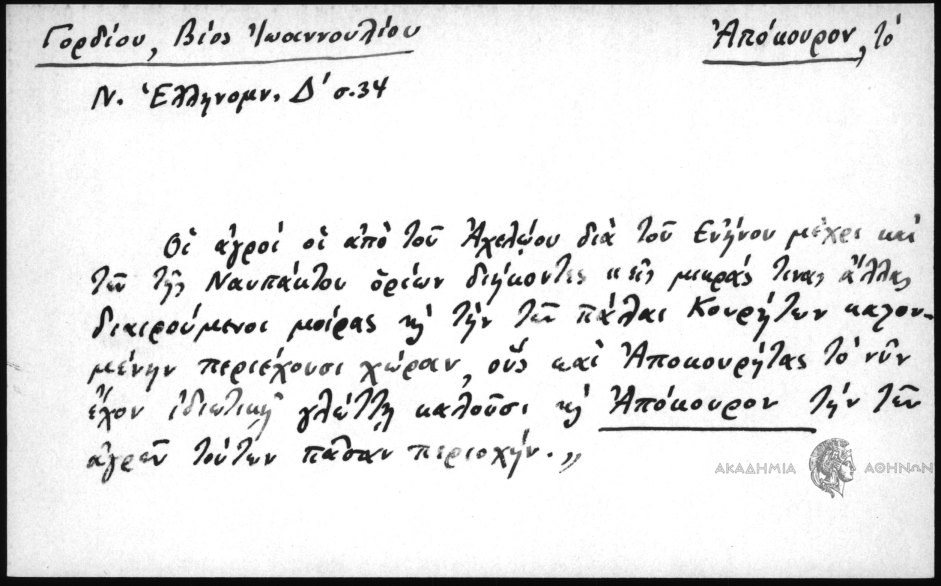 Γορδίου, Βίος Ἰωαννουλίου
Ἀπόκουρον, τό
Ν. Ἑλληνομν. Δ' σ. 34
Οἱ ἀγροί οἱ ἀπό τοῦ Ἀχελῴου διά τοῦ Εὐήνου μέχρι καί
τῶν τῆς Ναυπάκτου ὁρίων διήκοντες „εἰς μικράς τινας ἄλλας
διαιρούμενοι μοίρας κὴ τὴν τῶν πάλαι Κουρήτων καλου-
μένην περιέχουσι χώραν, οὕς καὶ Ἀποκουρήτας τό νῦν
ἔχον ἰδιωτικῇ γλώττῃ καλοῦσι κὴ Ἀπόκουρον τήν τῶν
ἀγρῶν τούτων πᾶσαν περιοχήν.„
ΑΚΑΔΗΜΙΑ ΑΘΗΝΩΝ